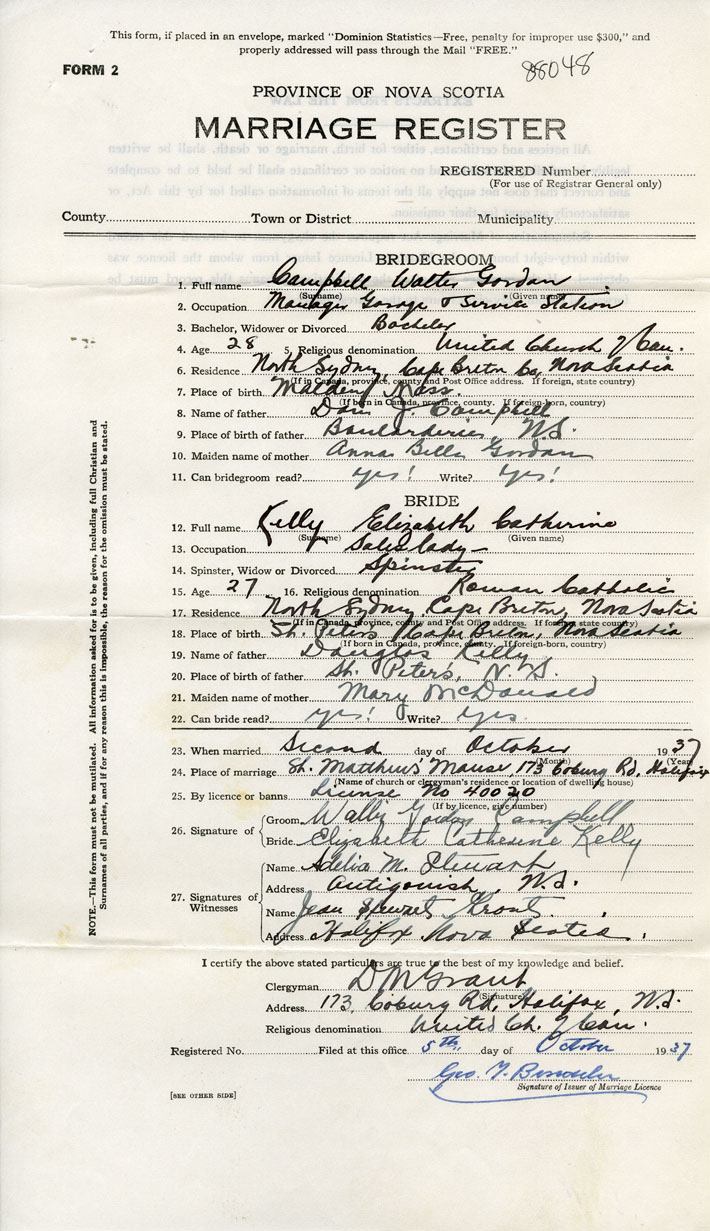 This form, if placed in an envelope, marked "Dominion Statistics—Free, penalty for improper use $300," and
properly addressed will pass through the Mail "FREE."
FORM 2
88048
PROVINCE OF NOVA SCOTIA
MARRIAGE REGISTER
REGISTERED Number
(For use of Registrar General only)
County Town or District Municipality
BRIDEGROOM
1. Full name Campbell Walter Gordon
(Surname) (Given name)
2. Occupation Manager Garage & Service Station
3. Bachelor, Widower or Divorced Bachelor
4. Age 28 5. Religious denomination United Church of Can.
6. Residence North Sydney, Cape Breton Co, Nova Scotia
(If in Canada, province, county and Post Office address. If foreign, state country)
7. Place of birth Malden, Mass.
(If born in Canada, province, county. If foreign-born, country)
8. Name of father Dan J. Campbell
9. Place of birth of father Boularderie, N.S.
10. Maiden name of mother Anna Belle Gordon
11. Can bridegroom read? yes! Write? yes!
BRIDE
12. Full name Kelly Elizabeth Catherine
(Surname) (Given name)
13. Occupation Saleslady
14. Spinster, Widow or Divorced Spinster
15. Age 27 16. Religious denomination Roman Catholic
17. Residence North Sydney, Cape Breton, Nova Scotia
(If in Canada, province, county and Post Office address. If foreign, state country)
18. Place of birth St. Peters, Cape Breton, Nova Scotia
(If born in Canada, province, county. If foreign-born, country)
19. Name of father Douglas Kelly
20. Place of birth of father St. Peters, N.S.
21. Maiden name of mother Mary McDonald
22. Can bride read? yes! Write? yes.
23. When married Second day of October 1937
(Month) (Year)
24. Place of marriage St. Matthews' Manse, 173 Coburg Rd. Halifax
(Name of church or clergyman's residence or location of dwelling house)
25. By licence or banns License No 40020
(If by licence, give number)
26. Signature of
Groom Gordon Campbell
Bride Elizabeth Catherine Kelly
27. Signatures of Witnesses
Name Adelia M. Stewart
Address Antigonish, N.S.
Name Jean Stewart Grant
Address Halifax Nova Scotia
I certify the above stated particulars are true to the best of my knowledge and belief.
Clergyman D M Grant
(Signature)
Address 173, Coburg Rd, Halifax, N.S.
Religious denomination United Ch. of Can.
Registered No. Filed at this office 5th day of October 1937
Geo.
Signature of Issuer of Marriage Licence
[SEE OTHER SIDE]
NOTE.—This form must not be mutilated. All information asked for is to be given, including full Christian and
Surnames of all parties, and if for any reason this is impossible, the reason for the omission must be stated.